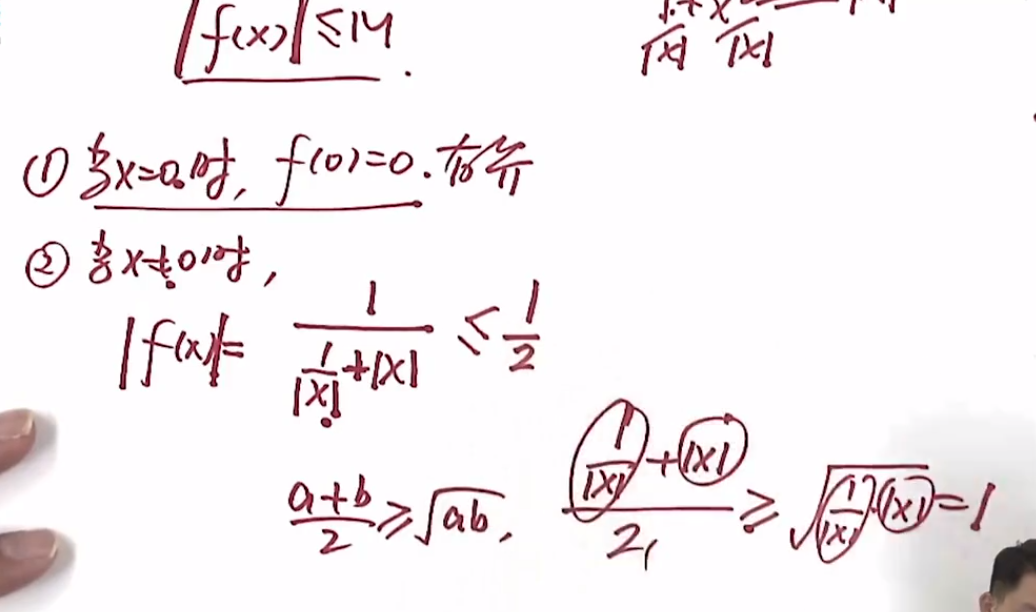 |f(x)|≤M.
① 当x=0时, f(0)=0.有界
② 当x≠0时,
|f(x)|= 1/(1/|x|+|x|) ≤ 1/2
(a+b)/2 ≥ √(ab), (1/|x|+|x|)/2 ≥ √(1/|x|·|x|) = 1